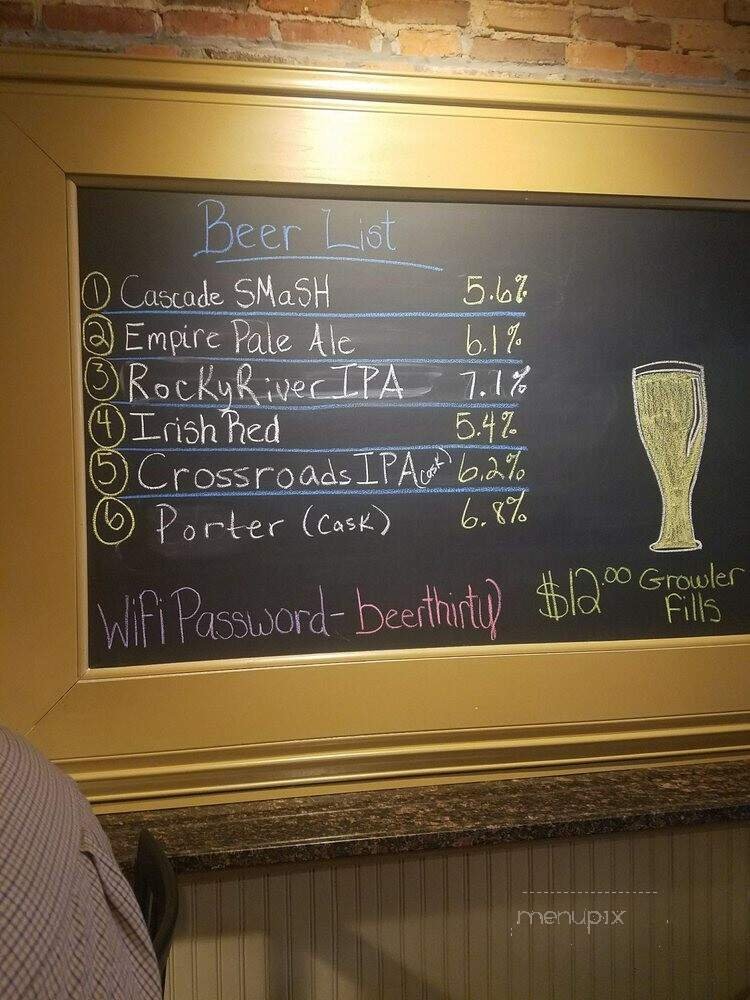 Beer List
1 Cascade SMaSH 5.6%
2 Empire Pale Ale 6.1%
3 Rocky River IPA 7.1%
4 Irish Red 5.4%
5 Crossroads IPA (cask) 6.2%
6 Porter (Cask) 6.8%
$12.00 Growler
Fills
WiFi Password- beerthirty
menupix